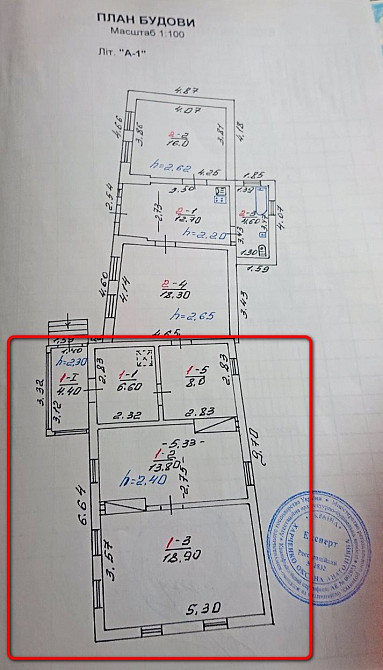 ПЛАН БУДОВИ
Масштаб 1:100
Літ. "А-1"
4.87
4.07
4.66
3.86
3.81
4.18
2-2
16.0
h=2.62
4.25
3.30
1.85
1.39
2.54
2.73
2-1
12.70
2-3
4.60
3.17
4.07
h=2.20
3.43
1.30
1.59
4.60
4.14
2-4
18.30
3.43
h=2.65
4.65
1.40
h=2.30
2.83
1-1
6.60
1-5
8.0
2.83
3.32
1-I
4.40
3.12
2.32
2.83
-5.33-
1-2
13.80
9.70
h=2.40
2.75
6.64
1-3
18.90
3.57
5.30
Експерт